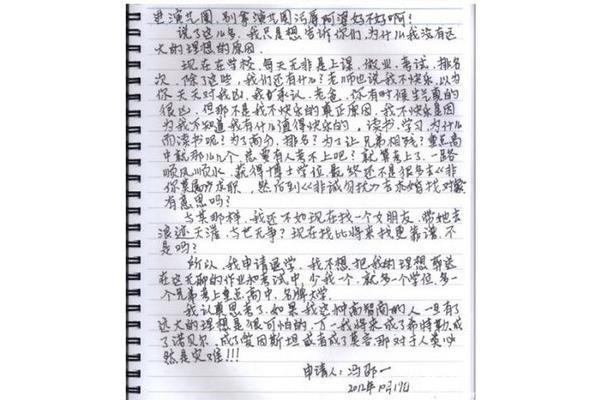 进演艺圈，别拿演艺圈活屠阿婆好不好啊！
说了这么多，我只是想告诉你们，为什么我没有远
大的理想的原因。
现在在学校，每天无非是上课，做业，考试，排名
次，除了这些，我们还有什么？老师也说我不快乐，以为
你天天对我凶，我承认，老爸，你有时候生气真的
很凶，但那不是我不快乐的真正原因，我不快乐是因
为我不知道我有什么值得快乐的，读书，学习，为什么
而读书呢？为了高分，排名？为了让兄弟相残？重点高
中就那么几个，总要有人考不上吧？就算考上了，一路
顺风顺水，获得博士学位最终还不是很多去《非
你莫属》求职，然后到《非诚勿扰》去求婚找对象
有意思吗？
与其那样，我还不如现在找一个女朋友，带她去
浪迹天涯，与世无争？现在找比将来找更靠谱，不
是吗？
所以，我申请退学，我不想把我的理想葬送
在这无聊的作业和考试中，少我一个，就多一个学位，多一
个兄弟考上重点高中，名牌大学。
我认真思考了，如果我这种高智商的人一旦有了
远大的理想是很可怕的，万一我将来成了希特勒，成
了诺贝尔，成了爱因斯坦或者成了莫言那对于人类必
然是灾难！！！
申请人：冯邵一
2012年10月19日